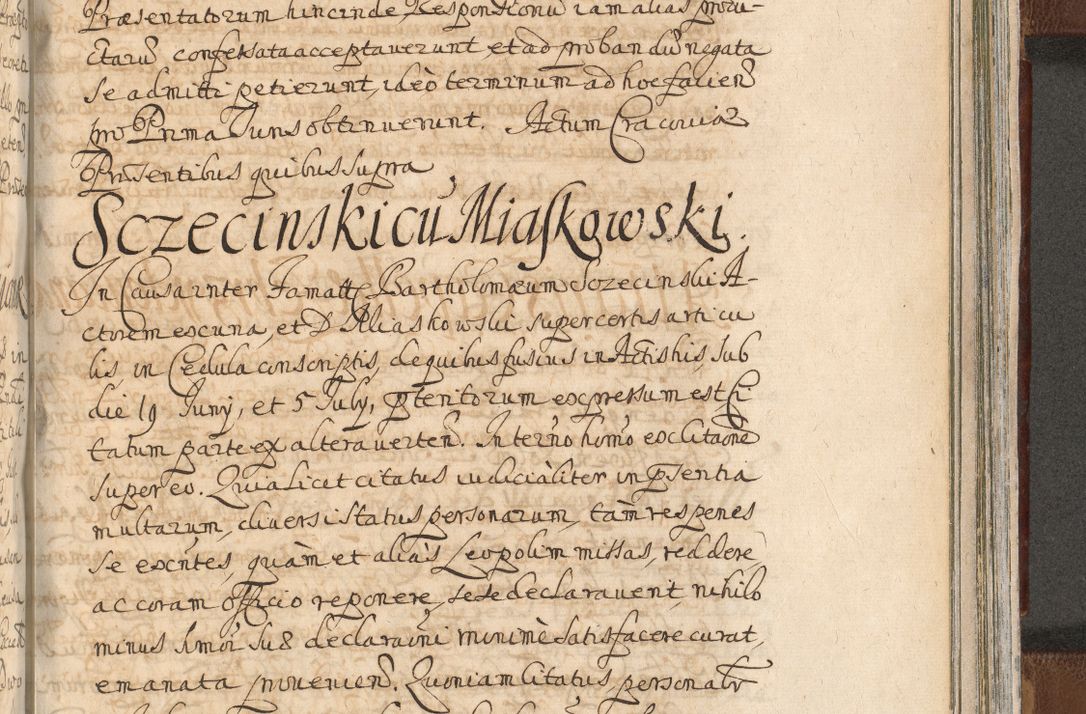 Præsentatorum hincinde, Responsionũ iam alias produ-
ctarũ confessata acceptaverunt, et ad probandũ negata
se admitti petierunt, ideò terminum ad hoc facienđ
pro Prima Juris obtinuerunt. Actum Cracoviæ
Præsentibus quibus supra
Sczecinski cũ Miaskowski.
In Causa inter Famatũ Bartholomæum Sczecinski A-
ctorem ex una, et D Miaskowski super certis articu
lis in Cedula conscriptis, de quibus fusius in Actis his, sub
die 19 Junij, et 5 July, pteritorum expressum est Ci
tatum parte ex altera verteñ. In terño homo ex citaõne
super eo. Quia licet citatus iudicialiter in pñsentia
multarum, diversi status personarum, tàm res penes
se exñtes, quàm et aliàs Leopolim missas, reddere,
ac coram officio reponere, sese declaraverit, nihilo
minus hmõi suæ declaraõni minimè satisfacere curat,
emanata provenieñ. Quoniam Citatus, personalr